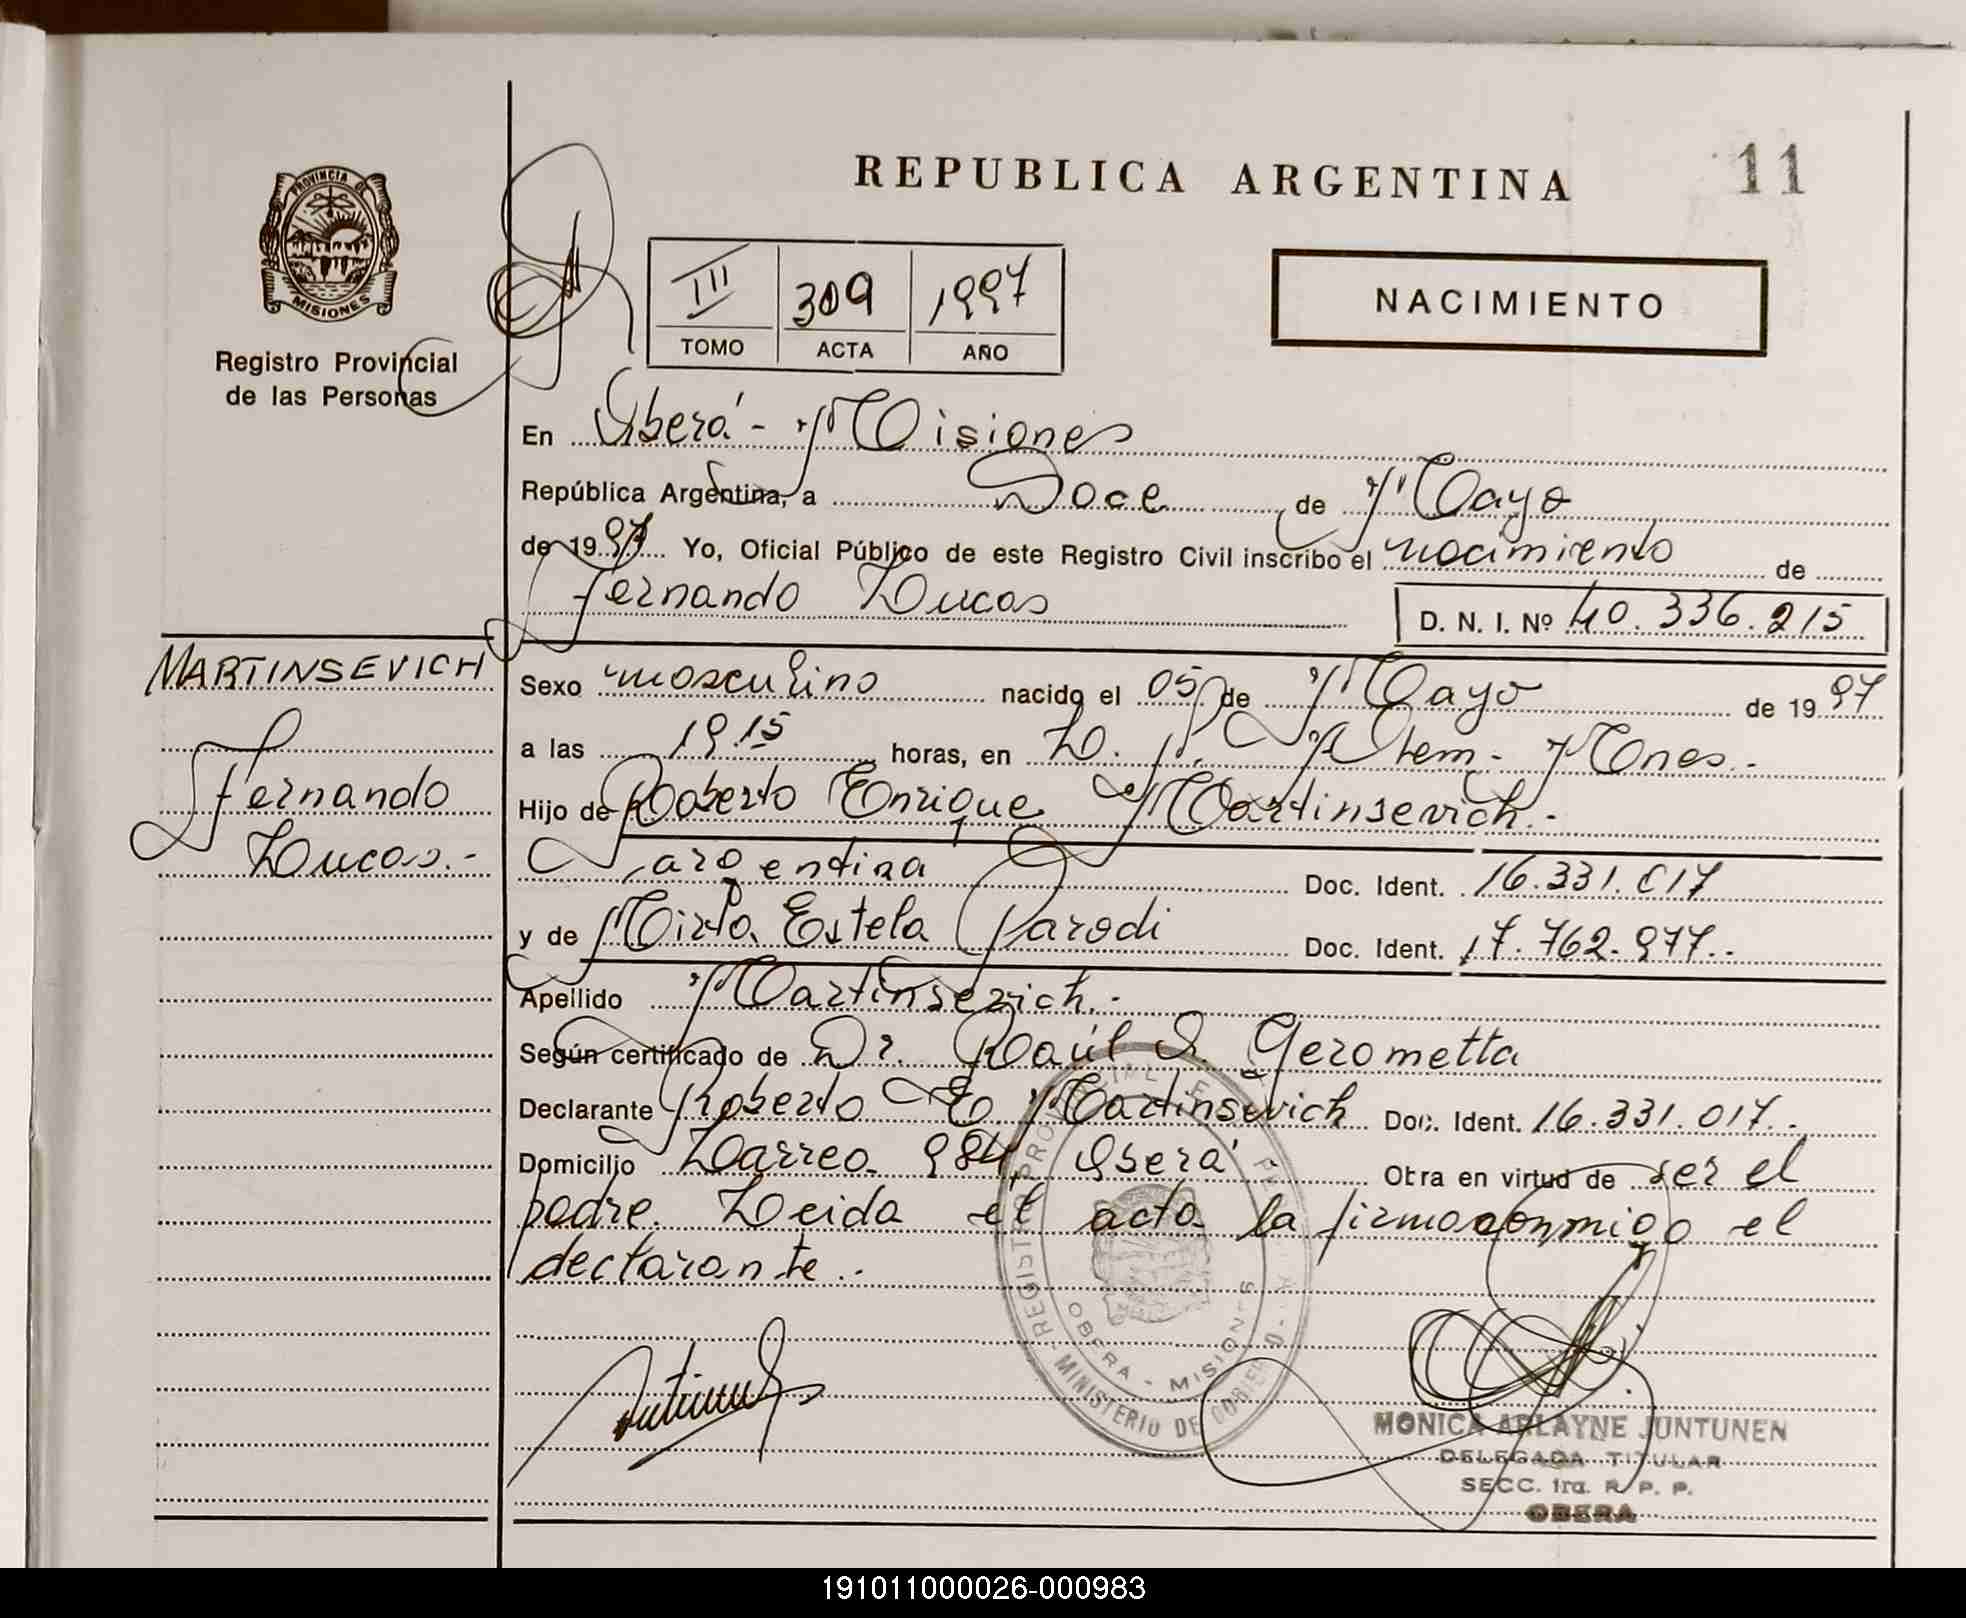 REPUBLICA ARGENTINA
11
PROVINCIA DE
MISIONES
Registro Provincial
de las Personas
III 309 1997
TOMO ACTA AÑO
NACIMIENTO
En Oberá - Misiones
República Argentina, a Doce de Mayo
de 1997 Yo, Oficial Público de este Registro Civil inscribo el nacimiento de
Fernando Lucas
D. N. I. Nº 40.336.215
MARTINSEVICH
Fernando
Lucas.-
Sexo masculino nacido el 05 de Mayo de 1997
a las 19.15 horas, en L. N. Alem - Mnes.-
Hijo de Roberto Enrique Martinsevich.-
argentina Doc. Ident. 16.331.017
y de Mirta Estela Parodi Doc. Ident. 17.762.977.-
Apellido Martinsevich.-
Según certificado de Dr. Raúl Gerometta
Declarante Roberto E. Martinsevich Doc. Ident. 16.331.017.-
Domicilio Larrea 984, Oberá Otra en virtud de ser el
padre. Leida el acta la firma conmigo el
declarante.-
REGISTRO PROVINCIAL DE PERSONAS
OBERA - MISIONES
MINISTERIO DE GOBIERNO
MONICA ARLAYNE JUNTUNEN
DELEGADA TITULAR
SECC. 1ra. R. P. P.
OBERA
191011000026-000983